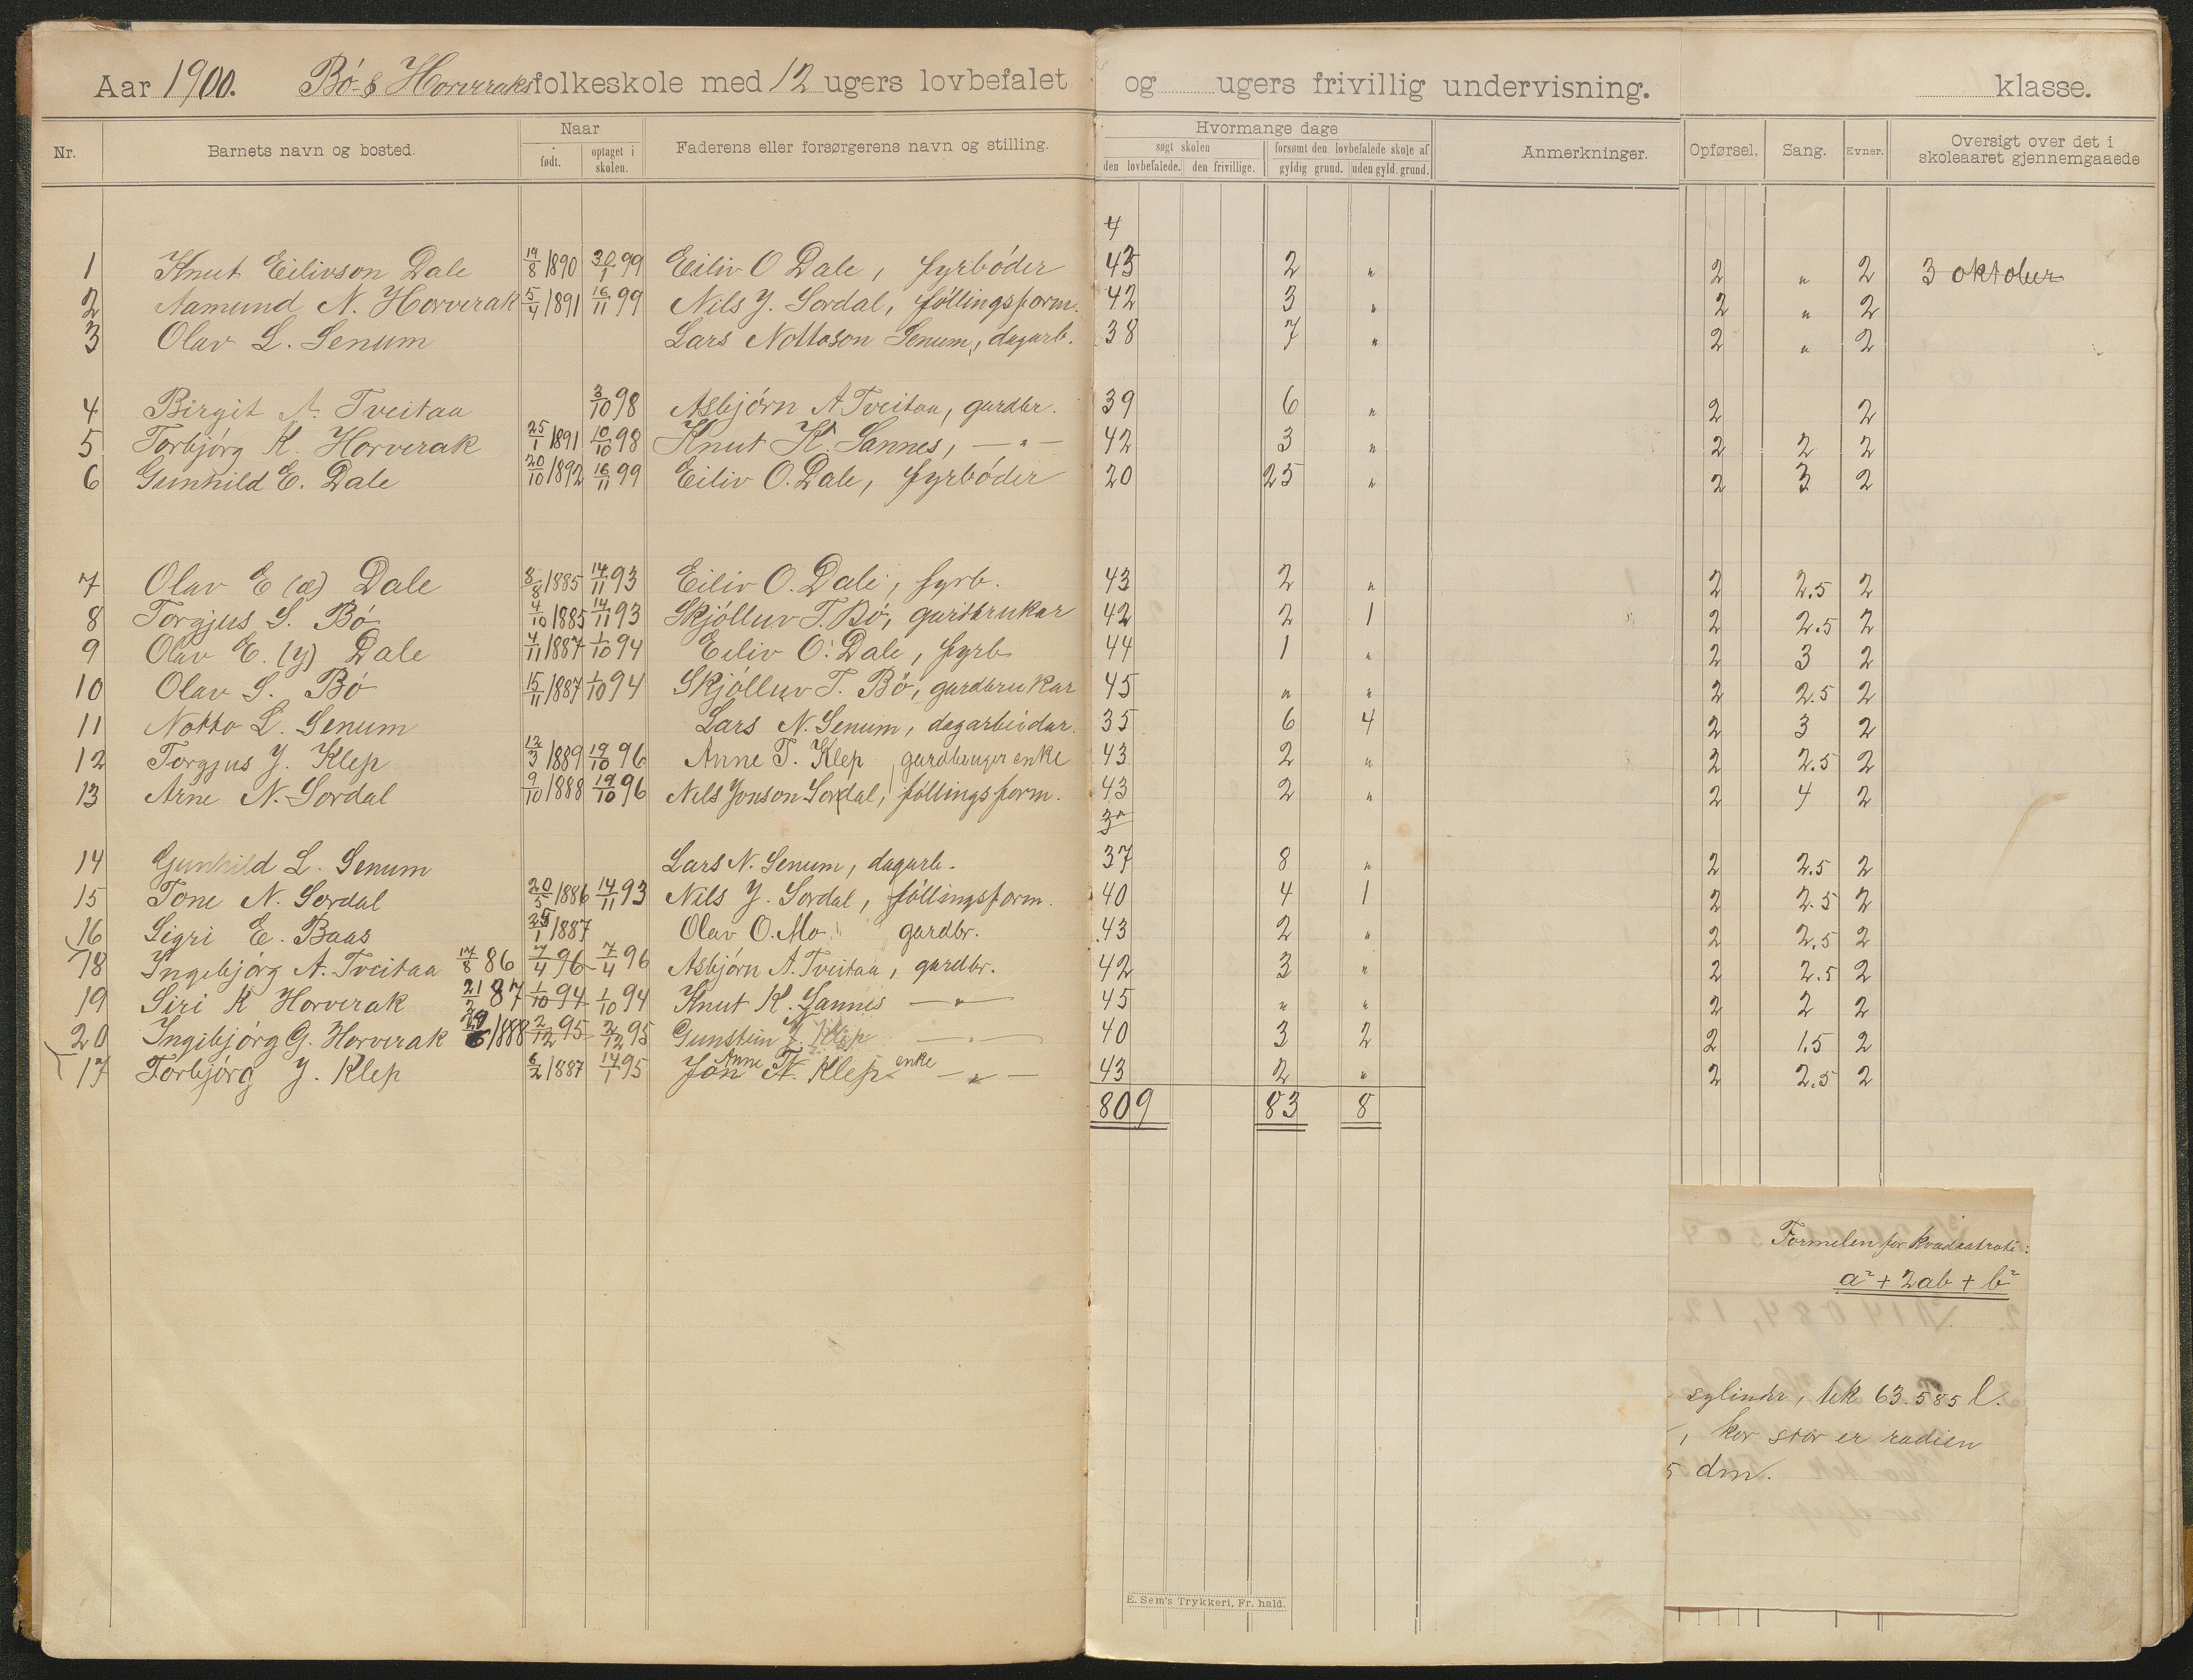 Aar 1900. Bø- & Horveraks folkeskole med 12 ugers lovbefalet og ugers frivillig undervisning. klasse.
Nr. Barnets navn og bosted. Naar født. optaget i skolen. Faderens eller forsørgerens navn og stilling. Hvormange dage søgt skolen den lovbefalede. den frivillige. forsømt den lovbefalede skole af gyldig grund. uden gyld. grund. Anmerkninger. Opførsel. Sang. Evner. Oversigt over det i skoleaaret gjennemgaaede
4
1 Knut Eilivson Dale 19/8 1890 30/1 99 Eiliv O Dale, fyrbøder 43 2 " 2 " 2 3 oktober
2 Aamund N. Horverak 5/4 1891 16/11 99 Nils J. Sordal, føllingsform. 42 3 " 2 " 2
3 Olav L. Senum Lars Nottoson Senum, dagarb. 38 7 " 2 " 2
4 Birgit A. Tveitaa 3/10 98 Asbjørn A Tveitaa, gardbr. 39 6 " 2 2
5 Torbjørg K. Horverak 25/1 1891 10/10 98 Knut K. Sannes, — " — 42 3 " 2 2 2
6 Gunhild E. Dale 20/10 1892 16/11 99 Eiliv O. Dale, fyrbøder 20 25 " 2 3 2
7 Olav E (æ) Dale 8/8 1885 14/11 93 Eiliv O. Dale, fyrb. 43 2 " 2 2.5 2
8 Torgjus S. Bø 4/10 1885 14/11 93 Skjølluv T. Bø, gardbrukar 42 2 1 2 2.5 2
9 Olav E. (y) Dale 4/11 1887 1/10 94 Eiliv O. Dale, fyrb 44 1 " 2 3 2
10 Olav S. Bø 15/11 1887 1/10 94 Skjølluv T. Bø, gardbrukar 45 " " 2 2.5 2
11 Notto L. Senum Lars N. Senum, dagarbeidar. 35 6 4 2 3 2
12 Torgjus J. Klep 12/3 1889 19/10 96 Anne T. Klep, gardbruger enke 43 2 " 2 2.5 2
13 Arne N. Sordal 9/10 1888 19/10 96 Nils Jonson Sordal, føllingsform. 43 2 " 2 4 2
14 Gunhild L. Senum Lars N. Senum, dagarb. 37 8 " 2 2.5 2
15 Tone N. Sordal 20/5 1886 14/11 93 Nils J. Sordal, føllingsform. 40 4 1 2 2.5 2
16 Sigri E. Baas 25/1 1887 Olav O. Mo gardbr. 43 2 " 2 2.5 2
18 Ingebjørg A. Tveitaa 17/8 86 7/4 96 7/4 96 Asbjørn A. Tveitaa, gardbr. 42 3 " 2 2.5 2
19 Siri K Horverak 21/2 87 1/10 94 1/10 94 Knut K. Sannes — " — 45 " " 2 2 2
20 Ingibjørg G. Horverak 6/1888 2/12 95 2/12 95 Gunstein J. Klep — " — 40 3 2 2 1.5 2
17 Torbjørg J. Klep 6/2 1887 14/1 95 Jon N. Klep Anne T. enke — " — 43 2 " 2 2.5 2
809 83 8
Formelen for kvadratrot:
a² + 2ab + b²
sylinder, tek 63.585 l.
, kor stor er radien
5 dm.
E. Sem's Trykkeri, Fr. hald.